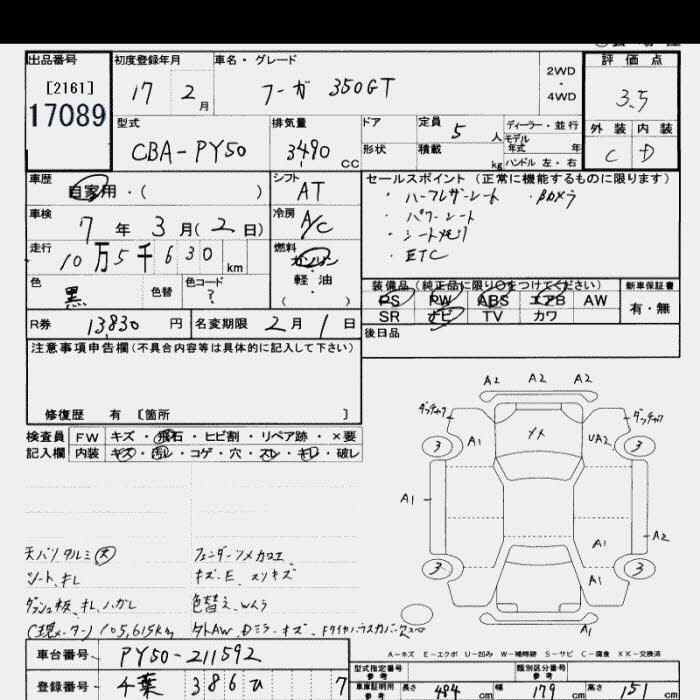 出品番号 初度登録年月 車名・グレード 2WD 評価点
[2161] 17 2月 フーガ 350GT ・ 3.5
17089 4WD
型式 排気量 ドア 定員 5 人 ディーラー・並行 外装 内装
CBA-PY50 3490 cc 形状 積載 kg モデル年式 年 C D
ハンドル 左・右
車歴 シフト セールスポイント (正常に機能するものに限ります)
自家用・( ) AT ・ハーフレザーシート ・Bカメラ
車検 冷房 ・パワーシート
7年 3月(2日) A/C ・シートメモリ
走行 燃料 ・ETC
10万5千630km ガソリン
色 色替 色コード 軽油 装備品 (純正品に限り○をつけてください) 新車保証書
黒 ? ( ) PS PW ABS エアB AW 有・無
R券 13830 円 名変期限 2月1日 SR ナビ TV カワ
注意事項申告欄(不具合内容等は具体的に記入して下さい) 後日品
修復歴 有 [箇所 ]
検査員 FW キズ・飛石・ヒビ割・リペア跡・×要
記入欄 内装 キズ・汚レ・コゲ・穴・スレ・キレ・破レ
A2 A2 A2
3 A1 UA2 3
A1
A1 A2
3 A1 3
A1
天バリタルミ(大)
シート、キレ キズ・E、スリキズ
ダッシュ板、キレ、ハガレ 色替え、Wムラ
(現メーター)105,615km
車台番号 PY50-211592
登録番号 千葉 386 ひ 7
A-キズ E-エクボ U-凹み W-補時跡 S-サビ C-腐食 XX-交換済
型式指定番号 参考 類別区分番号 参考
車庫証明用 参考 長さ 484 cm 幅 179 cm 高さ 151 cm